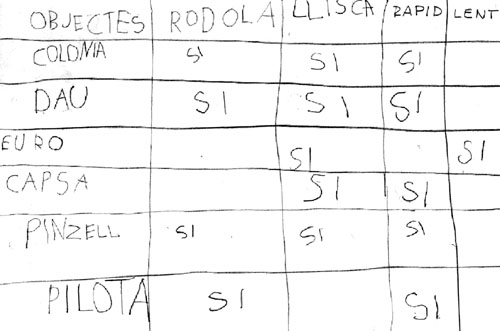 OBJECTES RODOLA LLISCA RAPID LENT
COLONIA SI SI SI
DAU SI SI SI
EURO SI SI
CAPSA SI SI
PINZELL SI SI SI
PILOTA SI SI